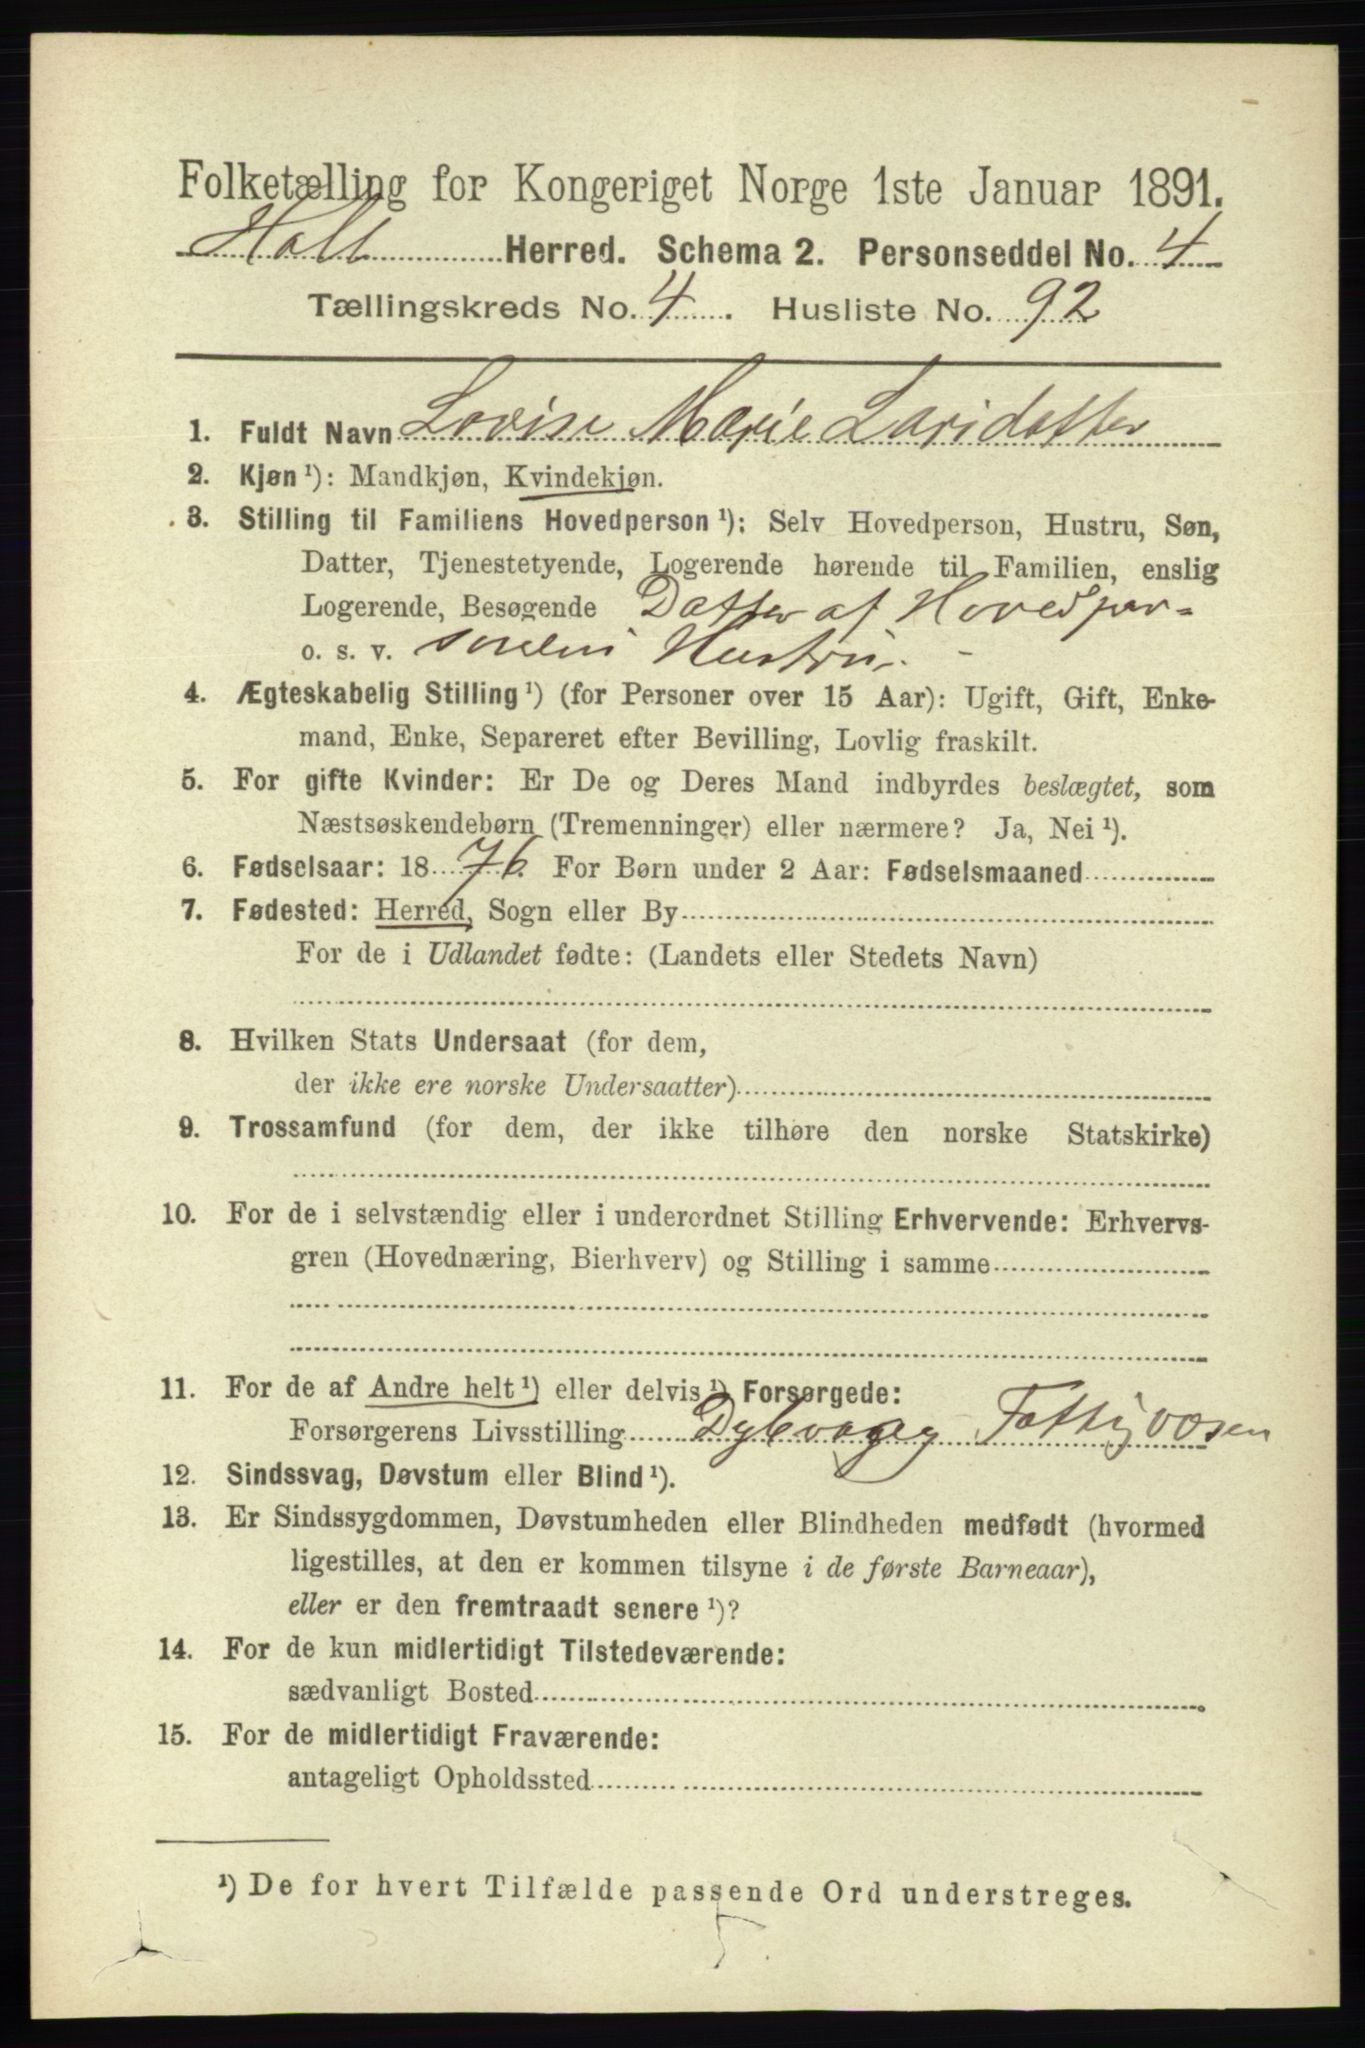 Folketælling for Kongeriget Norge 1ste Januar 1891.
Holt Herred. Schema 2. Personseddel No. 4
Tællingskreds No. 4. Husliste No. 92
1. Fuldt Navn Lovise Marie Larsdatter
2. Kjøn ¹): Mandkjøn, Kvindekjøn.
3. Stilling til Familiens Hovedperson ¹): Selv Hovedperson, Hustru, Søn,
Datter, Tjenestetyende, Logerende hørende til Familien, enslig
Logerende, Besøgende Datter af Hovedper-
o. s. v. sonens Hustru. -
4. Ægteskabelig Stilling ¹) (for Personer over 15 Aar): Ugift, Gift, Enke-
mand, Enke, Separeret efter Bevilling, Lovlig fraskilt.
5. For gifte Kvinder: Er De og Deres Mand indbyrdes beslægtet, som
Næstsøskendebørn (Tremenninger) eller nærmere? Ja, Nei ¹).
6. Fødselsaar: 1876. For Børn under 2 Aar: Fødselsmaaned
7. Fødested: Herred, Sogn eller By
For de i Udlandet fødte: (Landets eller Stedets Navn)
8. Hvilken Stats Undersaat (for dem,
der ikke ere norske Undersaatter)
9. Trossamfund (for dem, der ikke tilhøre den norske Statskirke)
10. For de i selvstændig eller i underordnet Stilling Erhvervende: Erhvervs-
gren (Hovednæring, Bierhverv) og Stilling i samme
11. For de af Andre helt ¹) eller delvis ¹) Forsørgede:
Forsørgerens Livsstilling Dybvaag Fattigvæsen
12. Sindssvag, Døvstum eller Blind ¹).
13. Er Sindssygdommen, Døvstumheden eller Blindheden medfødt (hvormed
ligestilles, at den er kommen tilsyne i de første Barneaar),
eller er den fremtraadt senere ¹)?
14. For de kun midlertidigt Tilstedeværende:
sædvanligt Bosted
15. For de midlertidigt Fraværende:
antageligt Opholdssted
¹) De for hvert Tilfælde passende Ord understreges.